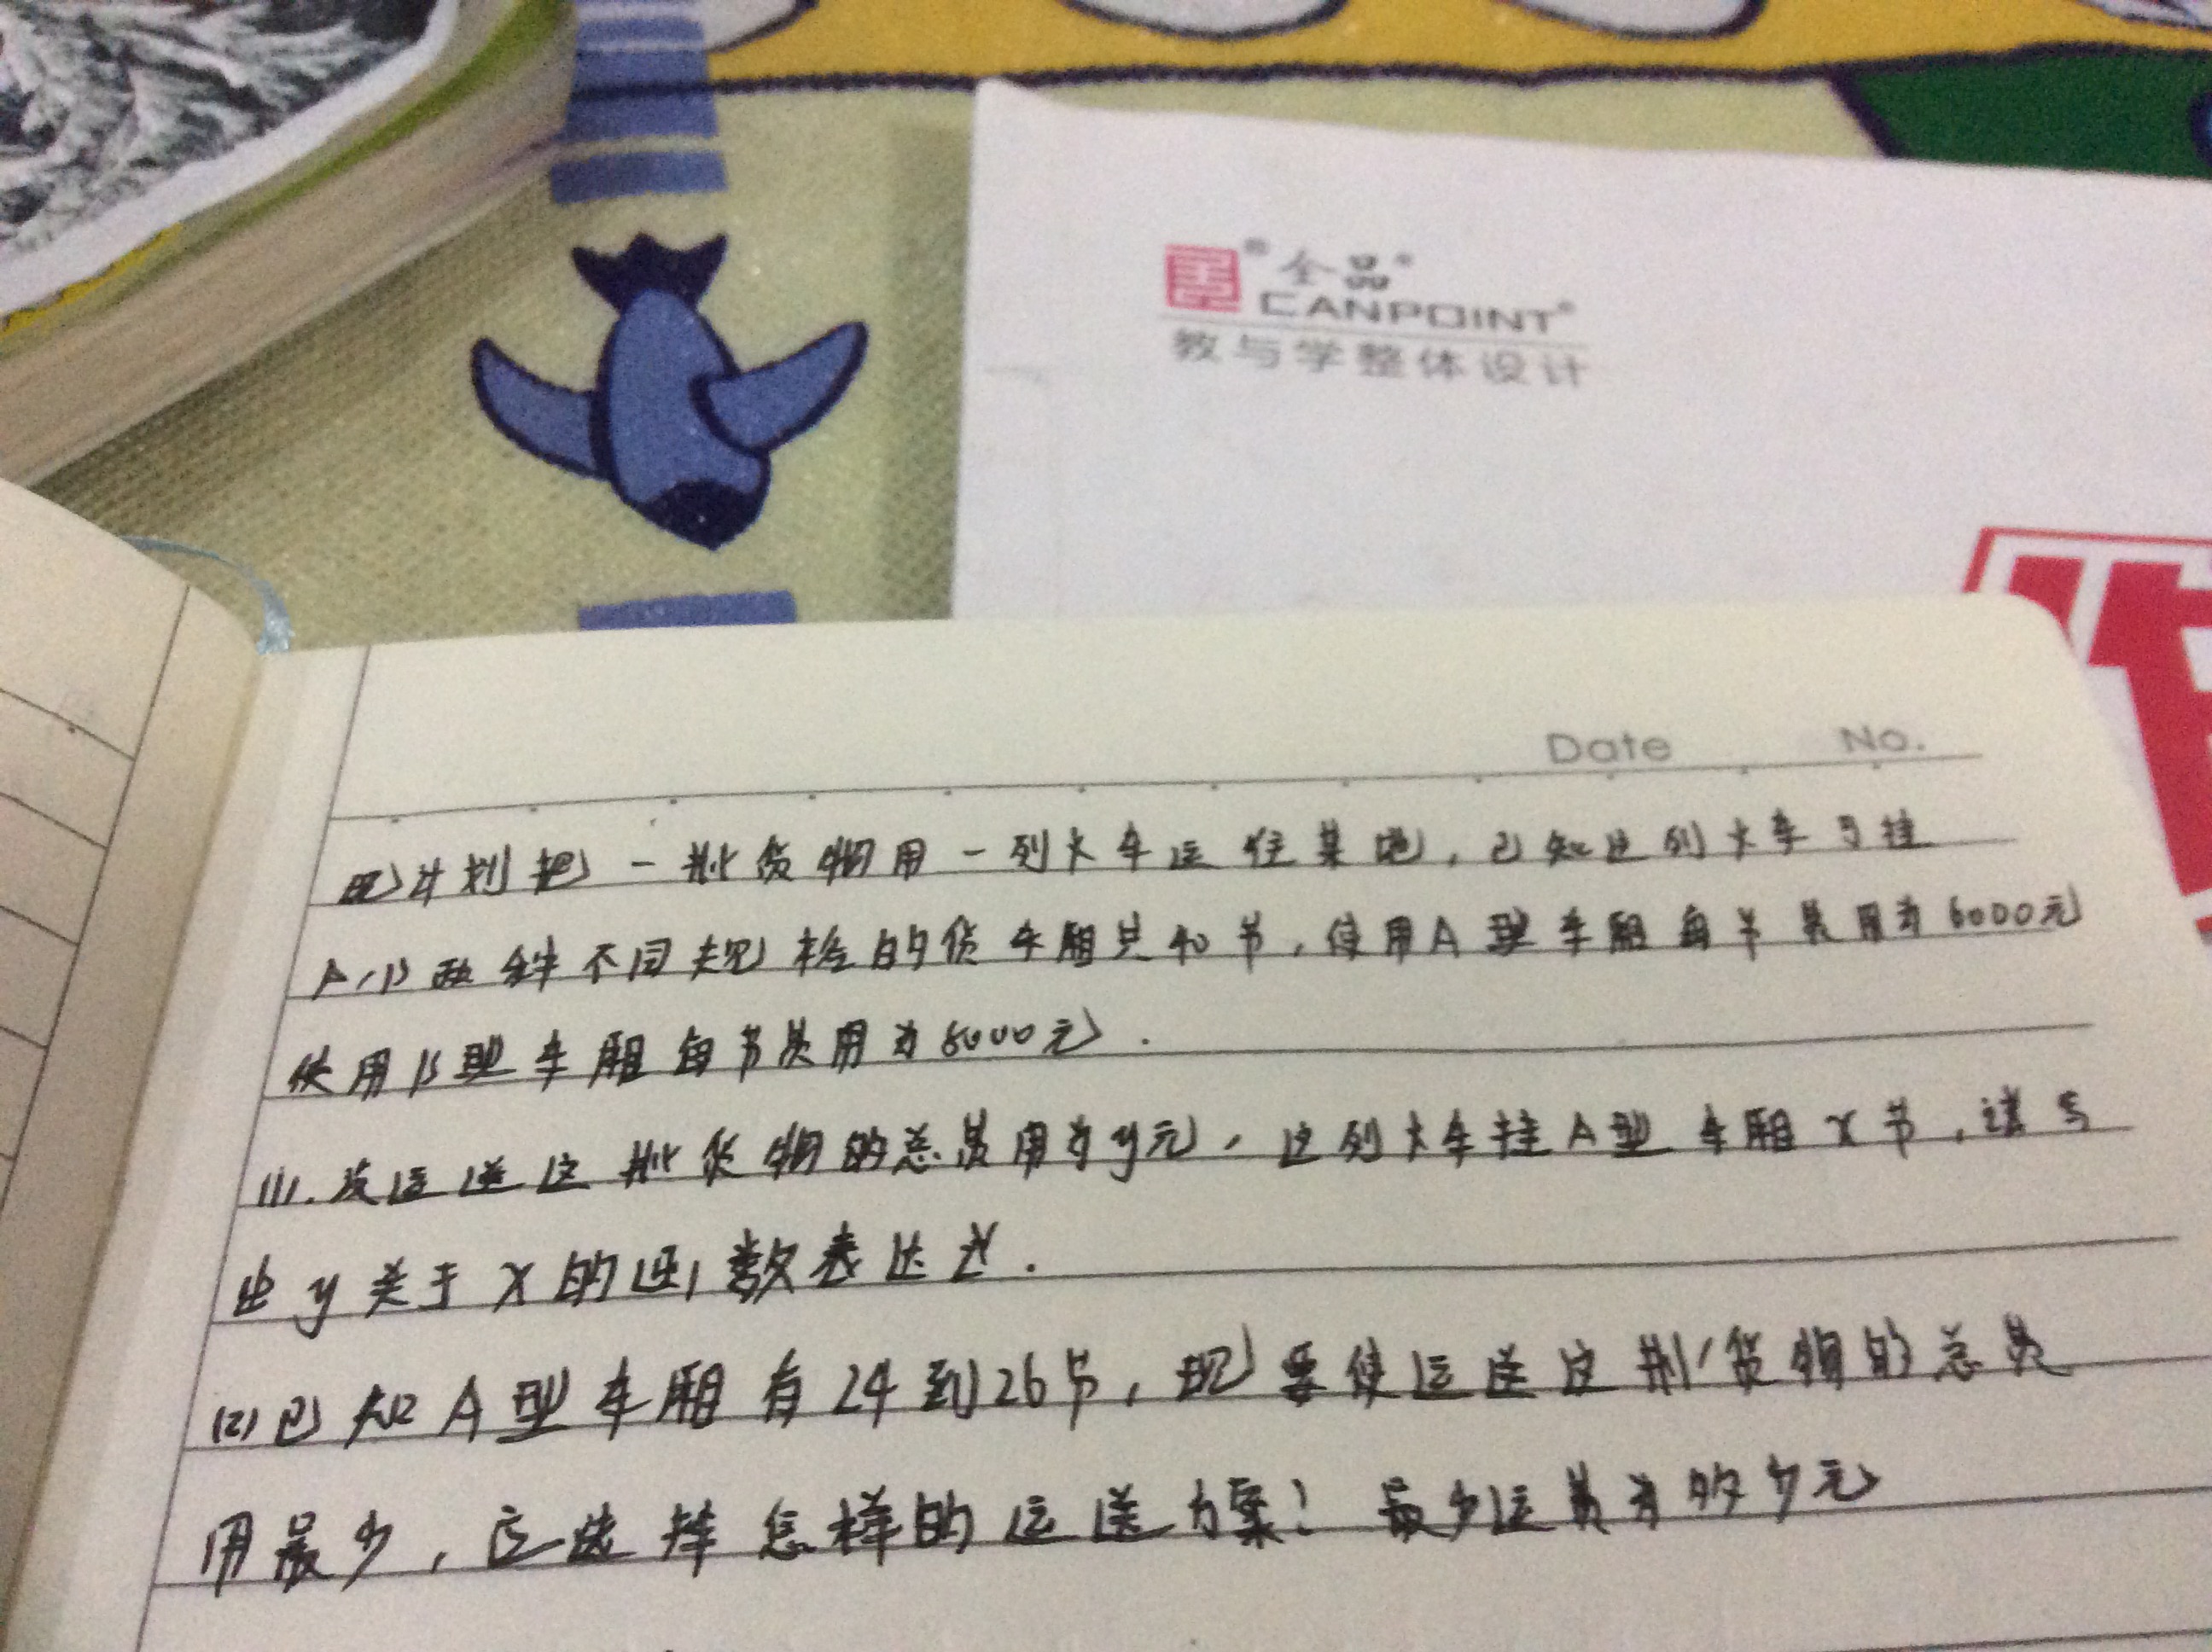 全品
CANPOINT
教与学整体设计
Date No.
现计划把一批货物用一列火车运往某地，已知这列火车可挂
A、B两种不同规格的货车厢共40节，使用A型车厢每节费用为6000元
使用B型车厢每节费用为8000元．
(1).设运送这批货物的总费用为y元，这列火车挂A型车厢x节，请写
出y关于x的函数表达式．
(2)已知A型车厢有24到26节，现要使运送这批货物的总费
用最少，应选择怎样的运送方案？最少运费为多少元